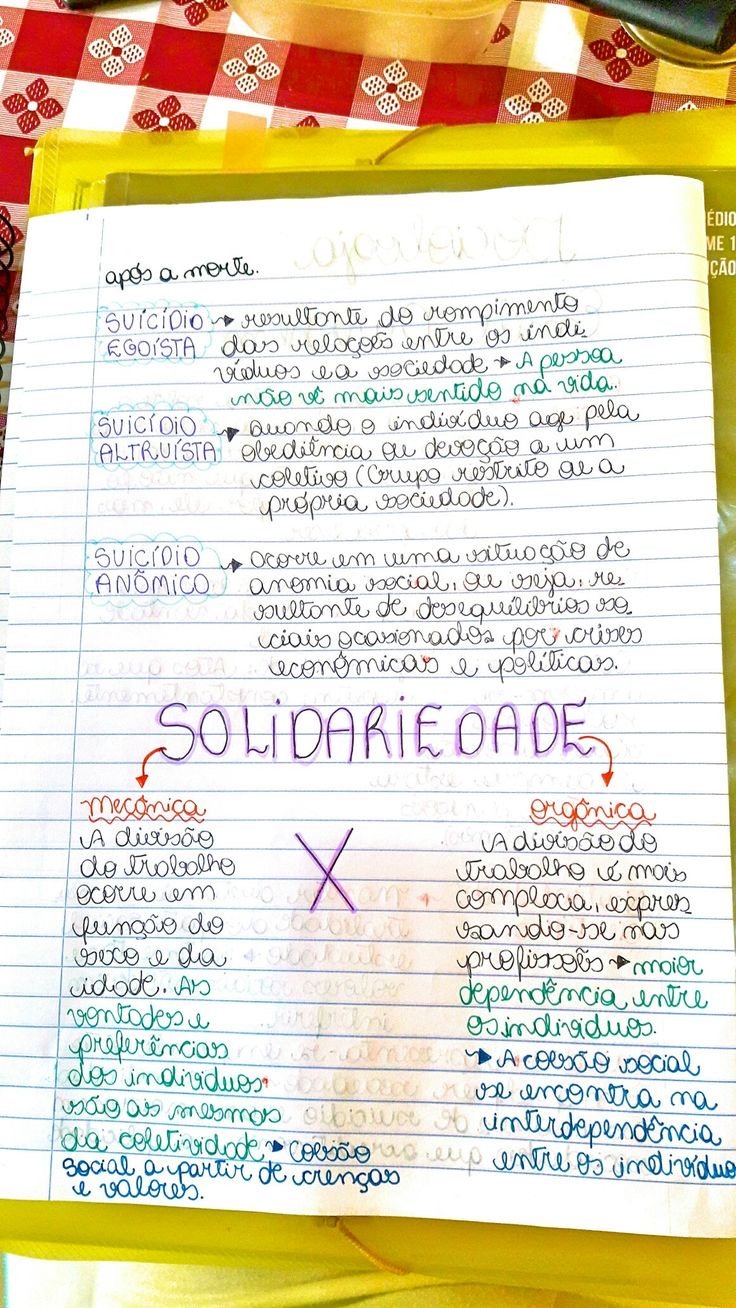 ÉDIO
ME 1
IÇÃO
Sociologia
após a morte.
SUICÍDIO EGOÍSTA → resultante do rompimento
das relações entre os indi-
víduos e a sociedade → A pessoa
não vê mais sentido na vida.
SUICÍDIO ALTRUÍSTA → Quando o indivíduo age pela
obediência ou devoção a um
coletivo (Grupo restrito ou a
própria sociedade).
SUICÍDIO ANÔMICO → ocorre em uma situação de
anomia social, ou seja, re-
sultante de desequilíbrios so-
ciais ocasionados por crises
econômicas e políticas.
SOLIDARIEDADE
mecânica
A divisão
do trabalho
ocorre em
função do
sexo e da
idade. As
vontades e
preferências
dos indivíduos
são as mesmas
da coletividade → coesão
social a partir de crenças
e valores.
X
orgânica
A divisão do
trabalho é mais
complexa, expres
sando-se nas
profissões → maior
dependência entre
os indivíduos.
→ A coesão social
se encontra na
interdependência
entre os indivíduos